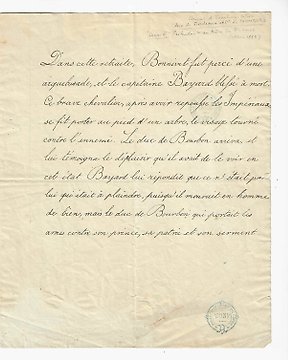 Dans cette retraite, Bonnivet fut percé d'une
arquebusade, et le capitaine Bayard blessé à mort.
Ce brave chevalier, après avoir repoussé les Impériaux
se fit poster au pied d'un arbre, le visage tourné
contre l'ennemi. Le duc de Bourbon arrive, et
lui témoigne le déplaisir qu'il avait de le voir en
cet état Bayard lui répondit que ce n'était pas
lui qui était à plaindre, puisqu'il mourait en homme
de bien, mais le duc de Bourbon, qui portait les
armes contre son prince, sa patrie et son serment